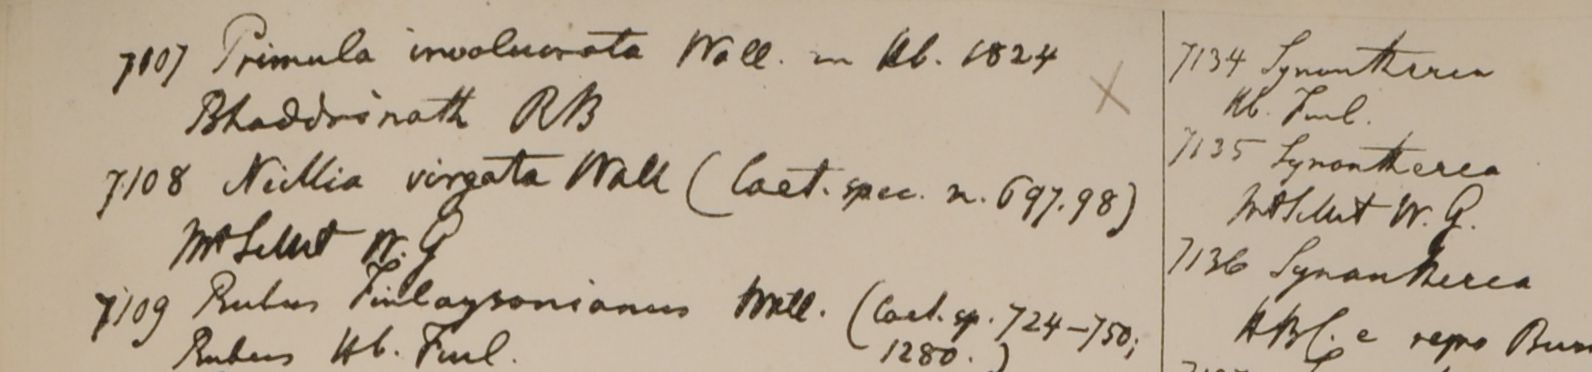 7107 Primula involucrata Wall. in Hb. 1824
Bhaddrinath RB
7108 Neillia virgata Wall (Caet. spec. n. 697.98)
Mt Sillet W. G
7109 Rubus Finlaysonianus Wall. (Caet. sp. 724-750;
1280.)
Rubus Hb. Finl.
7134 Synantherea
Hb. Finl.
7135 Synantherea
Mt Sillet W. G.
7136 Synantherea
HBC. e regno